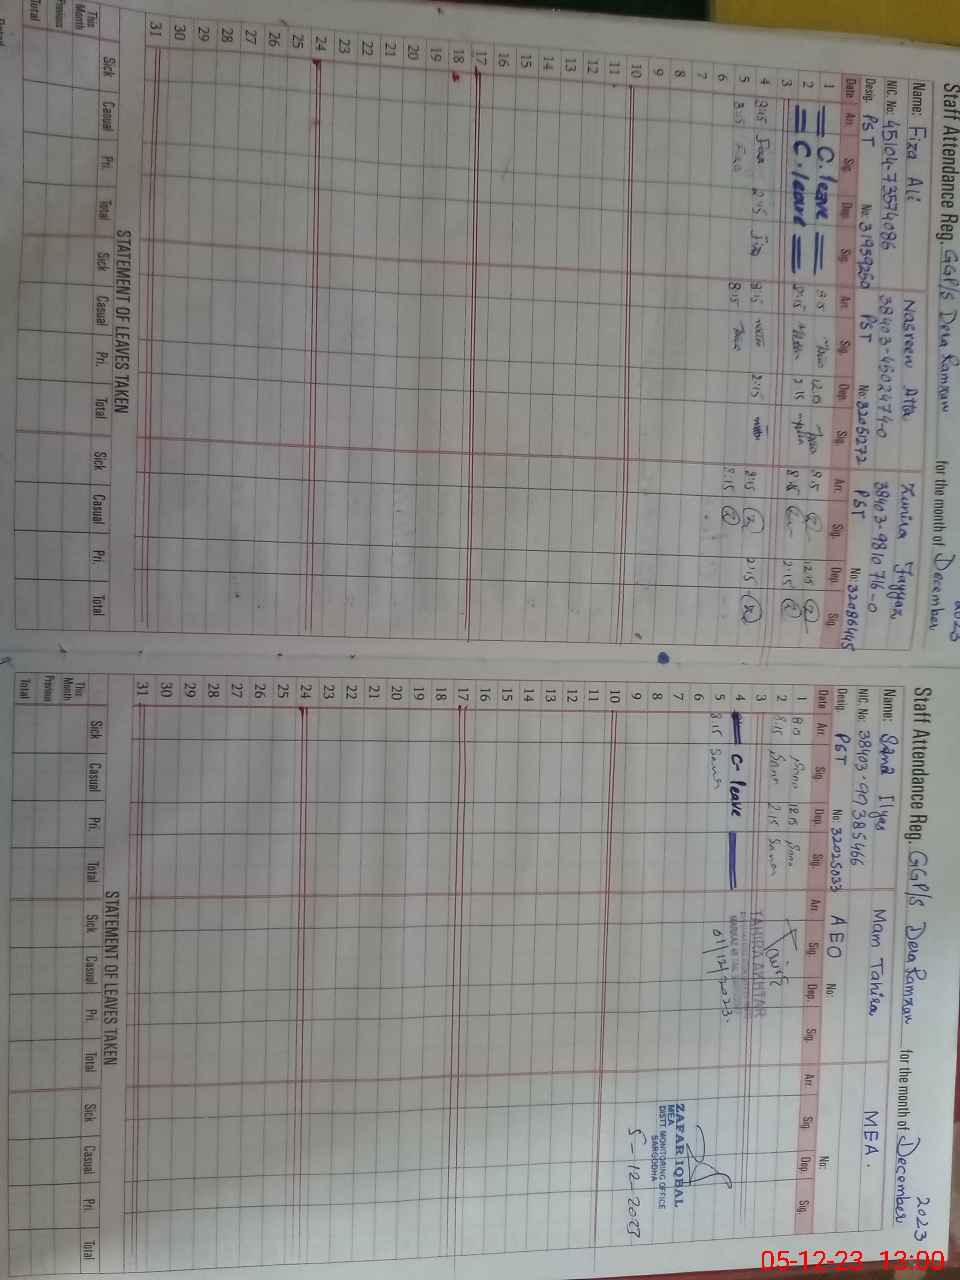 Staff Attendance Reg. GGP/S Dera Ramzan for the month of December 2023
Name: Fiza Ali Nasreen Atta Zunira Tayyab
NIC. No: 45104-73574086 38403-4502474-0 38403-9810716-0
Desig. PST No: 31939260 PST No: 32051272 PST No: 32086445
Date Arr. Sig. Dep. Sig. Arr. Sig. Dep. Sig. Arr. Sig. Dep. Sig.
1 C. leave 12:15 12:15
2 C. leave 8:15 2:15 8:15 2:15
3
4 8:15 Fiza 2:15 Fiza 8:15 2:15 8:15 2:15
5 8:15 Fiza 8:15 8:15
6
7
8
9
10
11
12
13
14
15
16
17
18
19
20
21
22
23
24
25
26
27
28
29
30
31
STATEMENT OF LEAVES TAKEN
Sick Casual Pri. Total Sick Casual Pri. Total Sick Casual Pri. Total
This Month
Previous
Total
Staff Attendance Reg. GGP/S Dera Ramzan for the month of December 2023
Name: Sana Ilyas Mam Tahira MEA.
NIC. No: 38403-99385466
Desig. PST No: 32025033 AEO No: No:
Date Arr. Sig. Dep. Sig. Arr. Sig. Dep. Sig. Arr. Sig. Dep. Sig.
1 Sana 12:15 Sana
2 8:15 Sana 2:15 Sana
3 TAHIRA AKHTAR
4 C-leave
5 8:15 Sana 01/12/2023.
6
7 ZAFAR IQBAL
MEA
8 DISTT MONITORING OFFICE
SARGODHA
9 5-12-2023
10
11
12
13
14
15
16
17
18
19
20
21
22
23
24
25
26
27
28
29
30
31
STATEMENT OF LEAVES TAKEN
Sick Casual Pri. Total Sick Casual Pri. Total Sick Casual Pri. Total
This Month
Previous
Total
05-12-23 13:00